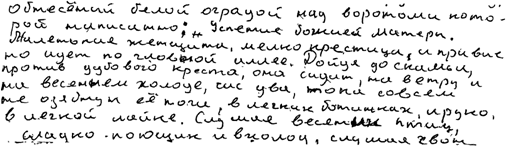 обнесённый белой оградой над воротами кото-
рой написано: „Успение божией матери.
Маленькая женщина, мелко крестица, и привыч
но идет по главной аллее. Дойдя до скамьи,
против дубового креста, она сидит, на ветру и
на весеннем холоде, час, два, пока совсем
не озябнут её ноги, в легких ботинках, и рука,
в легкой лайке. Слушая весенних птиц,
сладко поющих и в холод, слушая звон